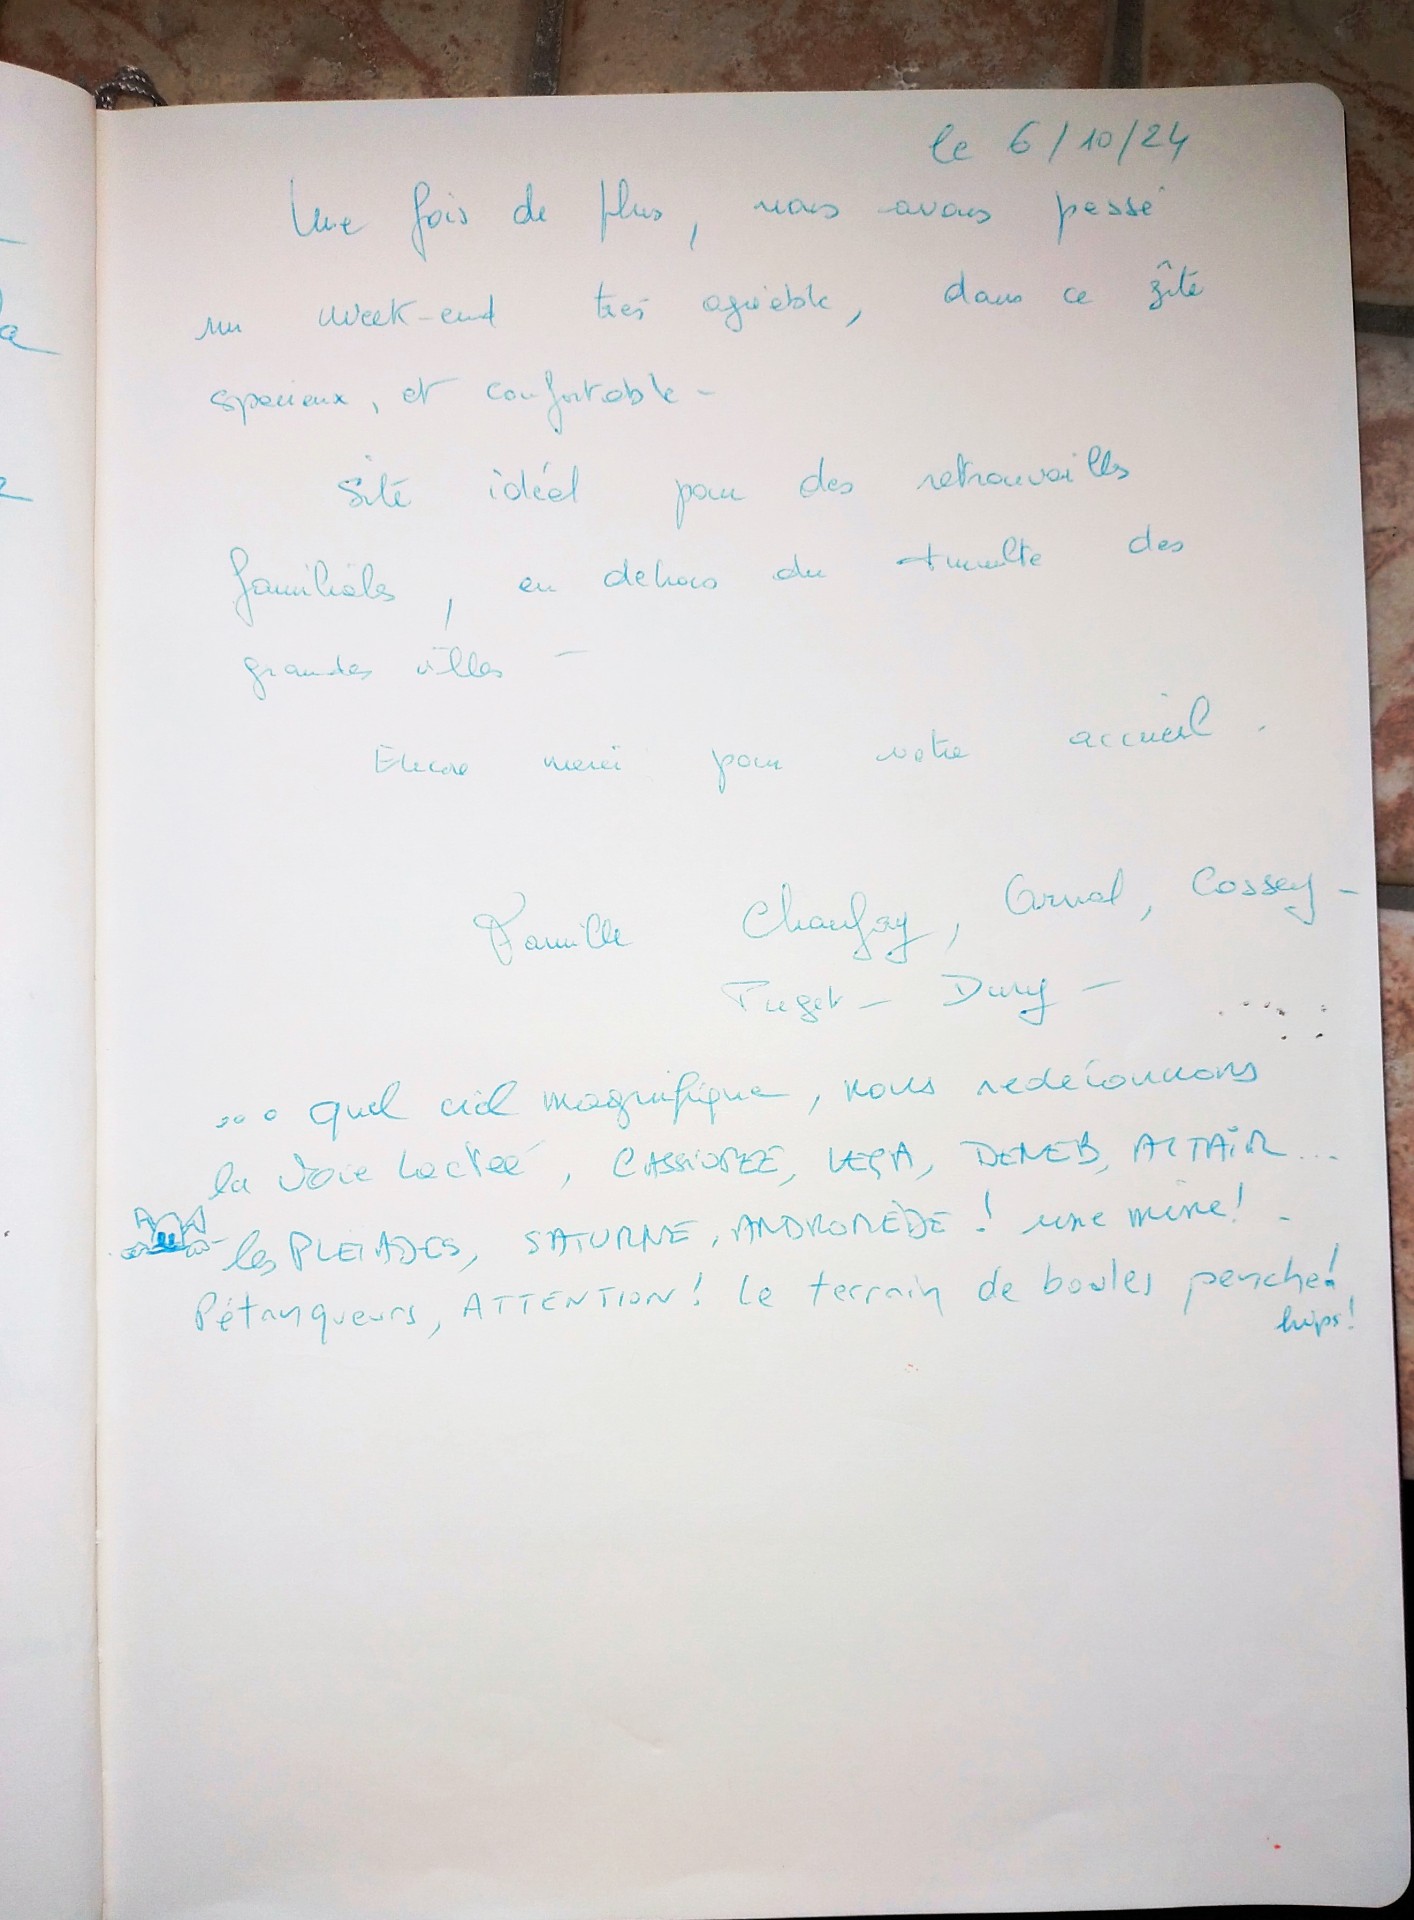 le 6/10/24
Une fois de plus, nous avons passé
un week-end très agréable, dans ce gîte
spacieux, et confortable -
Site idéal pour des retrouvailles
familiales, en dehors du tumulte des
grandes villes -
Encore merci pour votre accueil.
Famille Chaufray, Arnal, Cossey -
Puget - Dury -
... quel ciel magnifique, nous redécouvrons
la Voie Lactée, CASSIOPÉE, VEGA, DENEB, ALTAÏR...
les PLEIADES, SATURNE, ANDROMÈDE ! une mine! -
Pétanqueurs, ATTENTION! le terrain de boules penche!
hips!